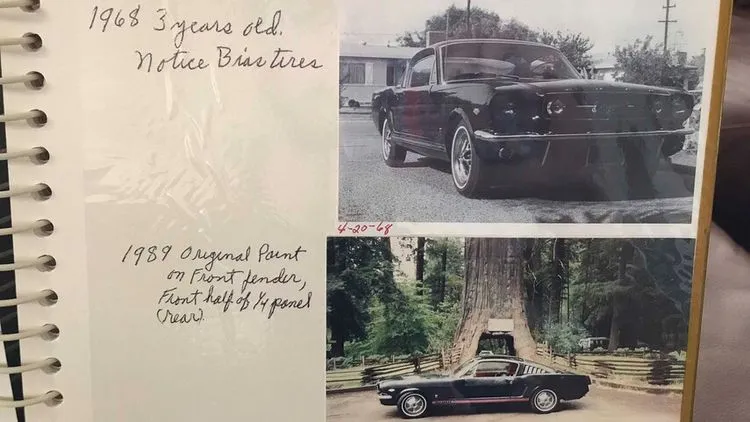 1968 3 years old.
Notice Bias tires
4-20-68
1989 Original Paint
on Front fender,
Front half of 1/4 panel
(rear).